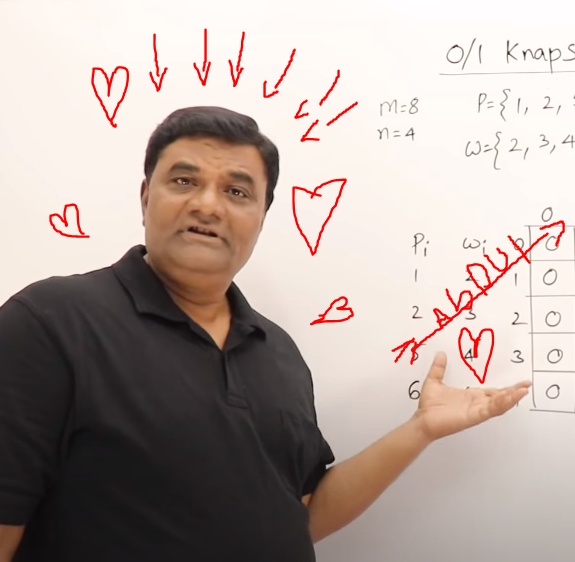 0/1 Knaps
m=8 P={1, 2,
n=4 w={2, 3, 4
0
Pi wi 0 0
1 1 0
2 3 2 0
4 3 0
6 0
ABDUL